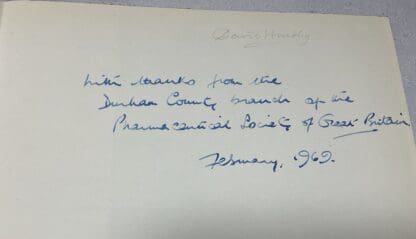 David
With thanks from the
Durham County branch of the
Pharmaceutical Society of Great Britain
February, 1969.